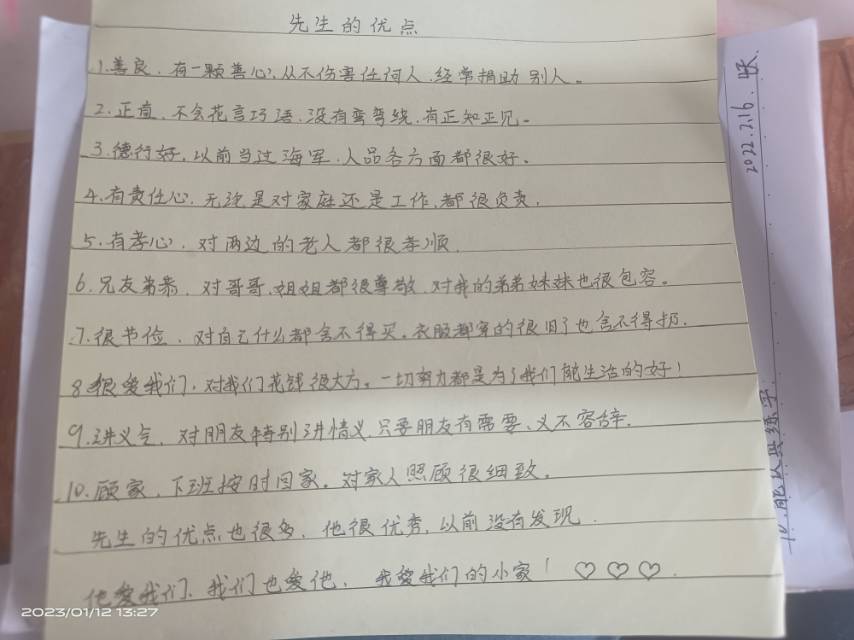 先生的优点
1.善良.有一颗善心,从不伤害任何人.经常捐助别人。
2.正直.不会花言巧语.没有弯弯绕.有正知正见。
3.德行好,以前当过海军.人品各方面都很好。
4.有责任心.无论是对家庭还是工作,都很负责.
5.有孝心.对两边的老人都很孝顺.
6.兄友弟恭.对哥哥、姐姐都很尊敬.对我的弟弟妹妹也很包容。
7.很节俭.对自己什么都舍不得买。衣服都穿的很旧了也舍不得扔.
8.很爱我们.对我们花钱很大方。一切努力都是为了我们能生活的好!
9.讲义气.对朋友特别讲情义.只要朋友有需要、义不容辞.
10.顾家.下班按时回家。对家人照顾很细致。
先生的优点也很多.他很优秀,以前没有发现.
他爱我们.我们也爱他.我爱我们的小家! ♡♡♡.
2022.2.16.
十.能认真练字
2023/01/12 13:27